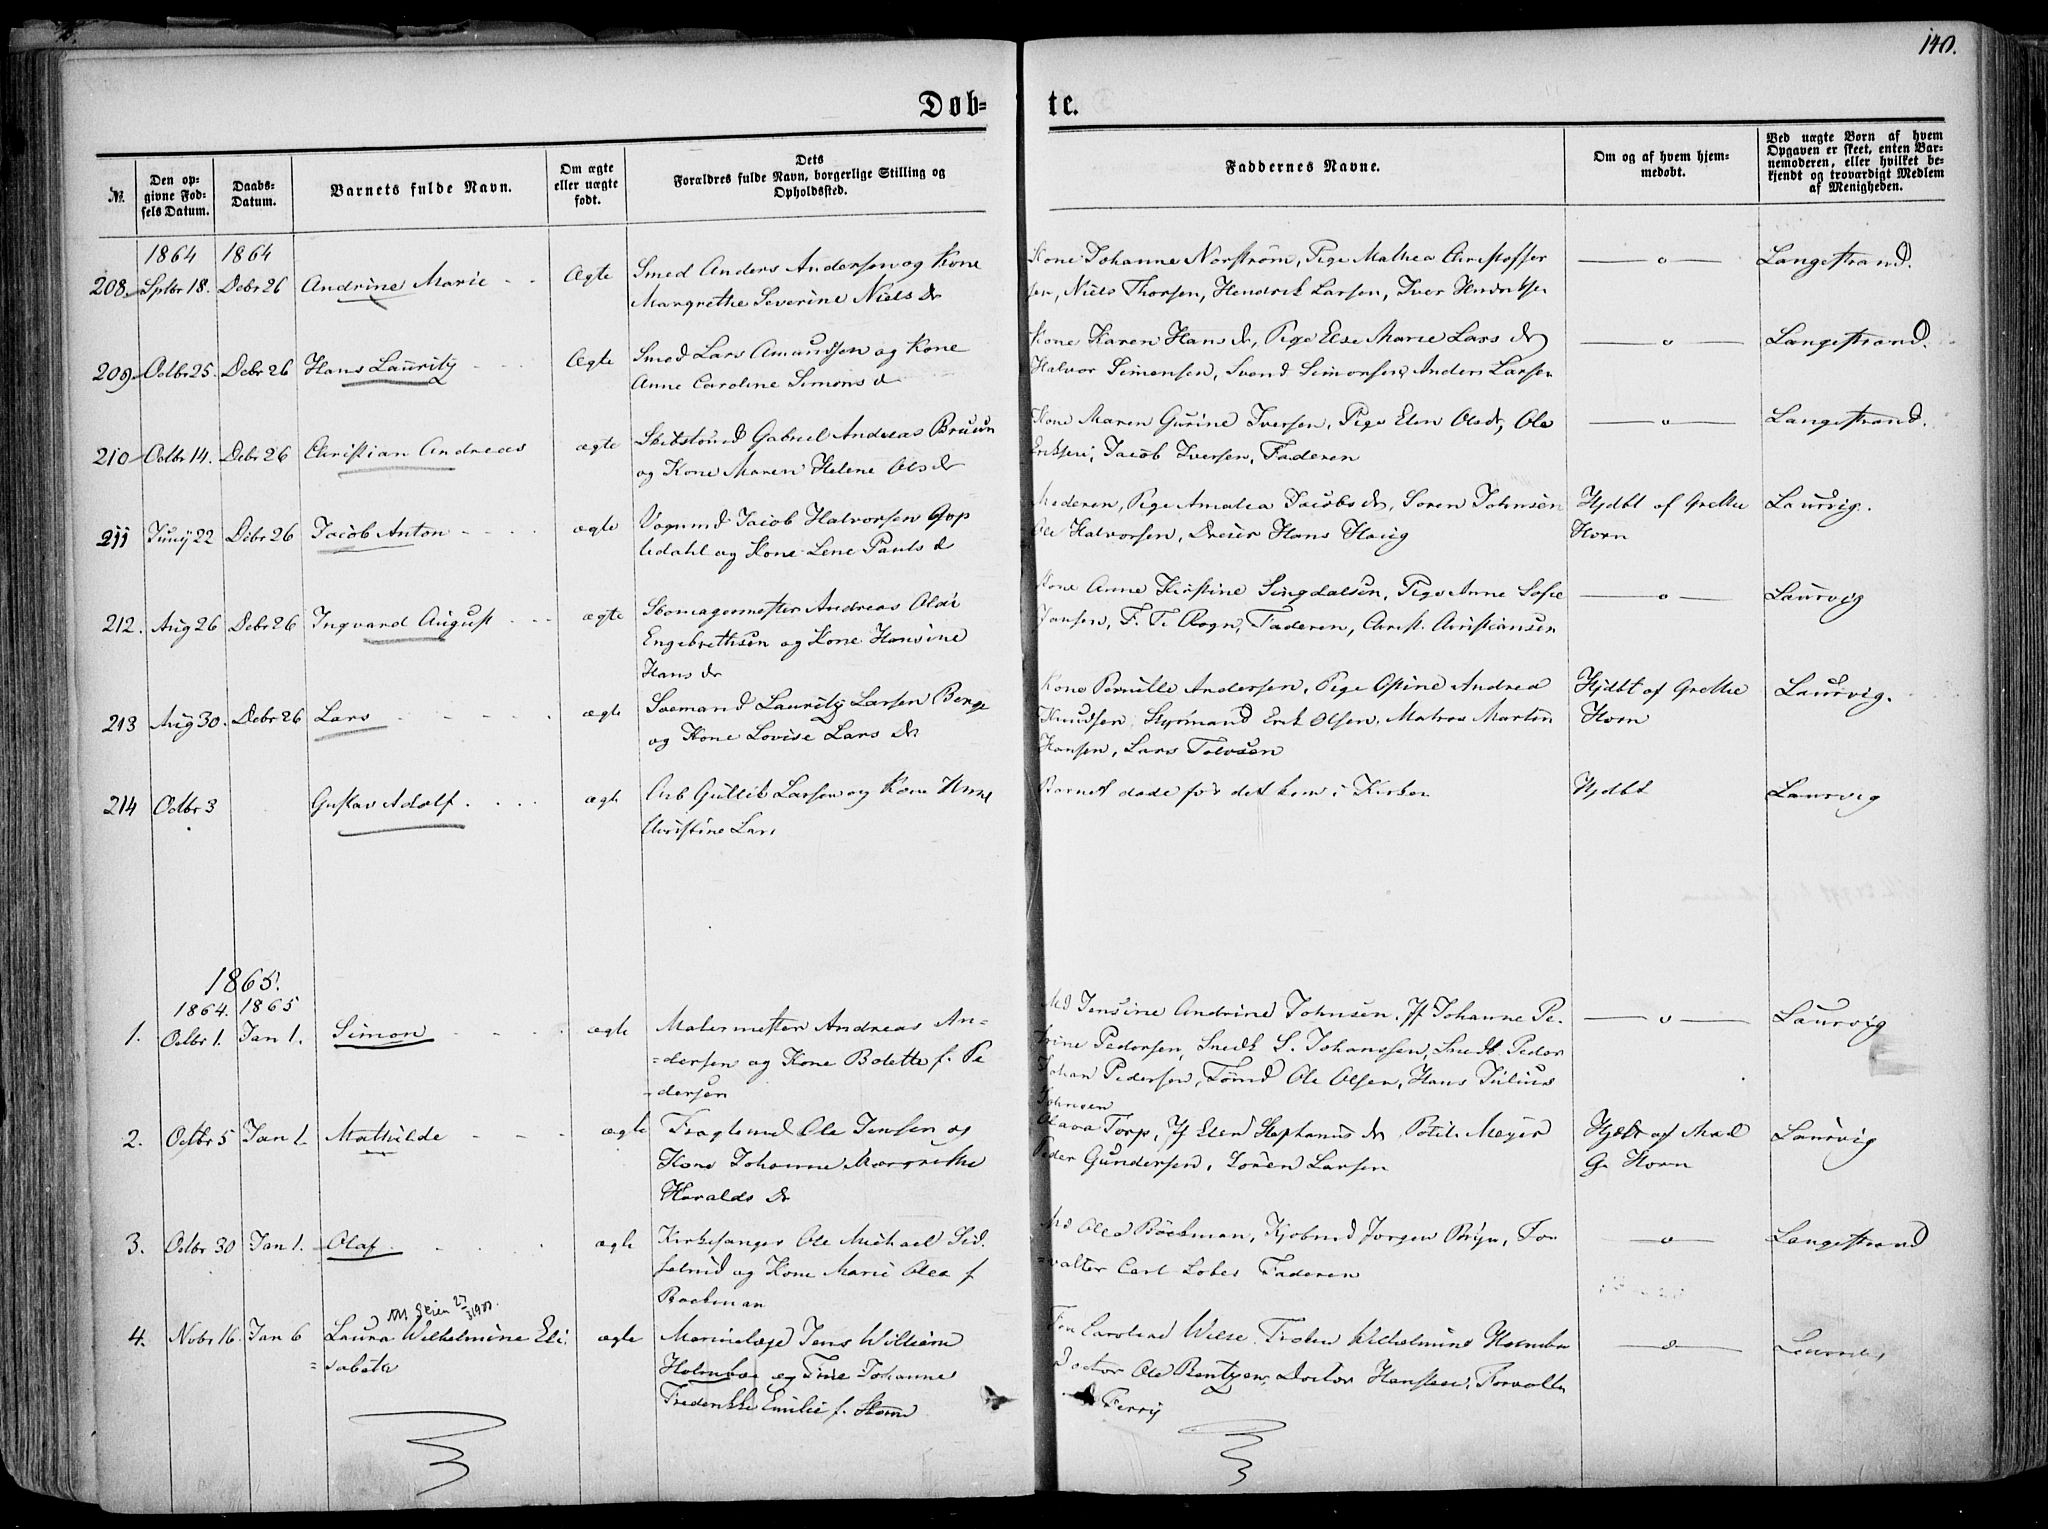 140.
Døb=
te.
№.
Den op-
givne Fød-
sels Datum.
Daabs-
Datum.
Barnets fulde Navn.
Om ægte
eller uægte
født.
Dets
Forældres fulde Navn, borgerlige Stilling og
Opholdssted.
Faddernes Navne.
Om og af hvem hjem-
medøbt.
Ved uægte Børn af hvem
Opgaven er skeet, enten Bar-
nemoderen, eller hvilket be-
kjendt og troværdigt Medlem
af Menigheden.
1864 1864
208. Sptbr 18. Debr 26 Andrine Marie Ægte
Smed Anders Andersen og Kone
Margrethe Severine Niels dr
Kone Johanne Norstrøm, Pige Mathea Christoffer
sen, Niels Thorsen, Hendrik Larsen, Iver
—o— Langestrand.
209 Octbr 25. Debr 26 Hans Lauritz Ægte
Smed Lars Amundsen og Kone
Anne Caroline Simons d
Kone Karen Hans dr, Pige Else Marie Lars dr
Halvor Simensen, Svend Simonsen, Anders Larsen
—o— Langestrand.
210 Octbr 14. Debr 26 Christian Andreas ægte
Gabriel Andreas Bruun
og Kone Maren Helene Ols dr
Kone Maren Gurine Iversen, Pige Elen Olsdr, Ole
Eriksen, Jacob Iversen, Faderen
—o— Langestrand.
211 Juny 22 Debr 26 Jacob Anton ægte
Vognmd Jacob Halvorsen Gop
ledahl og Kone Lene Pauls d
Moderen, Pige Amalia Jacobs dr, Soren Johnsen
Ole Halvorsen, Dreier Hans Haug
Hjdbt af Grethe
Horn
Laurvig.
212. Aug 26 Debr 26 Ingvard August ægte
Skomagermester Andreas
Engebrethsen og Kone Hansine
Hans dr
Kone Anne Kirstine Lingdalsen, Pige Anne Sofie
Jansen, F. T. Faderen, Christ. Christiansen
—o— Laurvig
213 Aug 30. Debr 26 Lars ægte
Soemand Lauritz Larsen Berge
og Kone Lovise Lars dr
Kone Pernille Andersen, Pige Andrea
Knudsen, Styrmand Erik Olsen, Matros Martin
Hansen, Lars
Hjdbt af Grethe
Horn
Laurvig.
214 Octbr 3 Gustav Adolf ægte
Arb Gullik Larsen og Kone
Christine Lars
Barnet døde før det kom i Kirken
Hjdbt
Laurvig
1865.
1864. 1865
1. Octbr 1. Jan 1. Simon ægte
Malermester Andreas An=
=dersen og Kone Bolette f. Pe
=dersen
Md Jensine Andrine Johnsen, Jf Johanne Pe-
trine Pedersen, Snedk S. Johanssen, Snedk Peder
Johan Pedersen, Tømd Ole Olsen, Hans Julius
Johnsen
—o— Laurvig
2. Octbr 5 Jan 1. Mathilde ægte
Fragtemd Ole Jensen og
Kone Johanne Margrethe
Haralds dr
Olava Torp, Jf Elen Stephanus dr, Meyer
Peder Gundersen, Søren Larsen
Hjdbt af Mad
G. Horn
Laurvig
3. Octbr 30 Jan 1. Olaf ægte
Kirkesanger Ole Michael
og Kone Marie Olea f
Bockman
Md Olea Bockman, Kjøbmd Jorgen Bryn, For
=valter Carl Faderen
—o— Langestrand
4. Nobr 16. Jan 6 Laura Wilhelmine Eli
=sabeth
ægte
Marinelæge Jens William
Holmboe og Fine Johanne
Frederikke Emilie f. Storm
Fru Caroline Wiese, Froken Wilhelmine Holmboe
Doctor Ole Bentzen, Doctor Hansteen, Forvalter
Ferry
—o— Laurvig